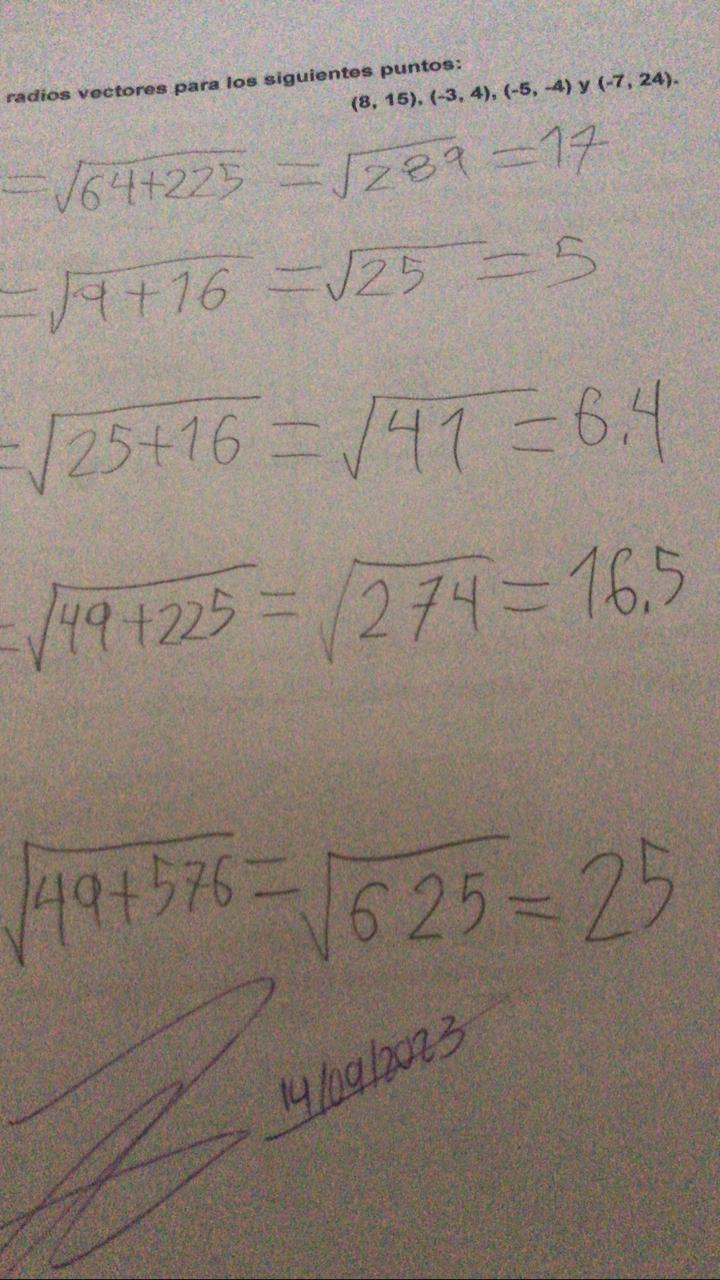 radios vectores para los siguientes puntos:
(8, 15), (-3, 4), (-5, -4) y (-7, 24).
=√64+225 =√289 =17
=√9+16 =√25 =5
=√25+16 =√41 =6.4
=√49+225 =√274 =16.5
√49+576 =√625 =25
14/09/2023